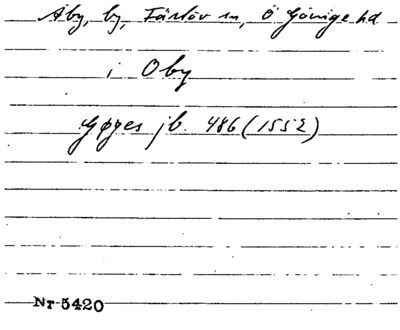 Åby, by, Färlöv sn, Ö Göinge hd
i Oby
Gøyes jb. 486 (1552)
Nr 5420